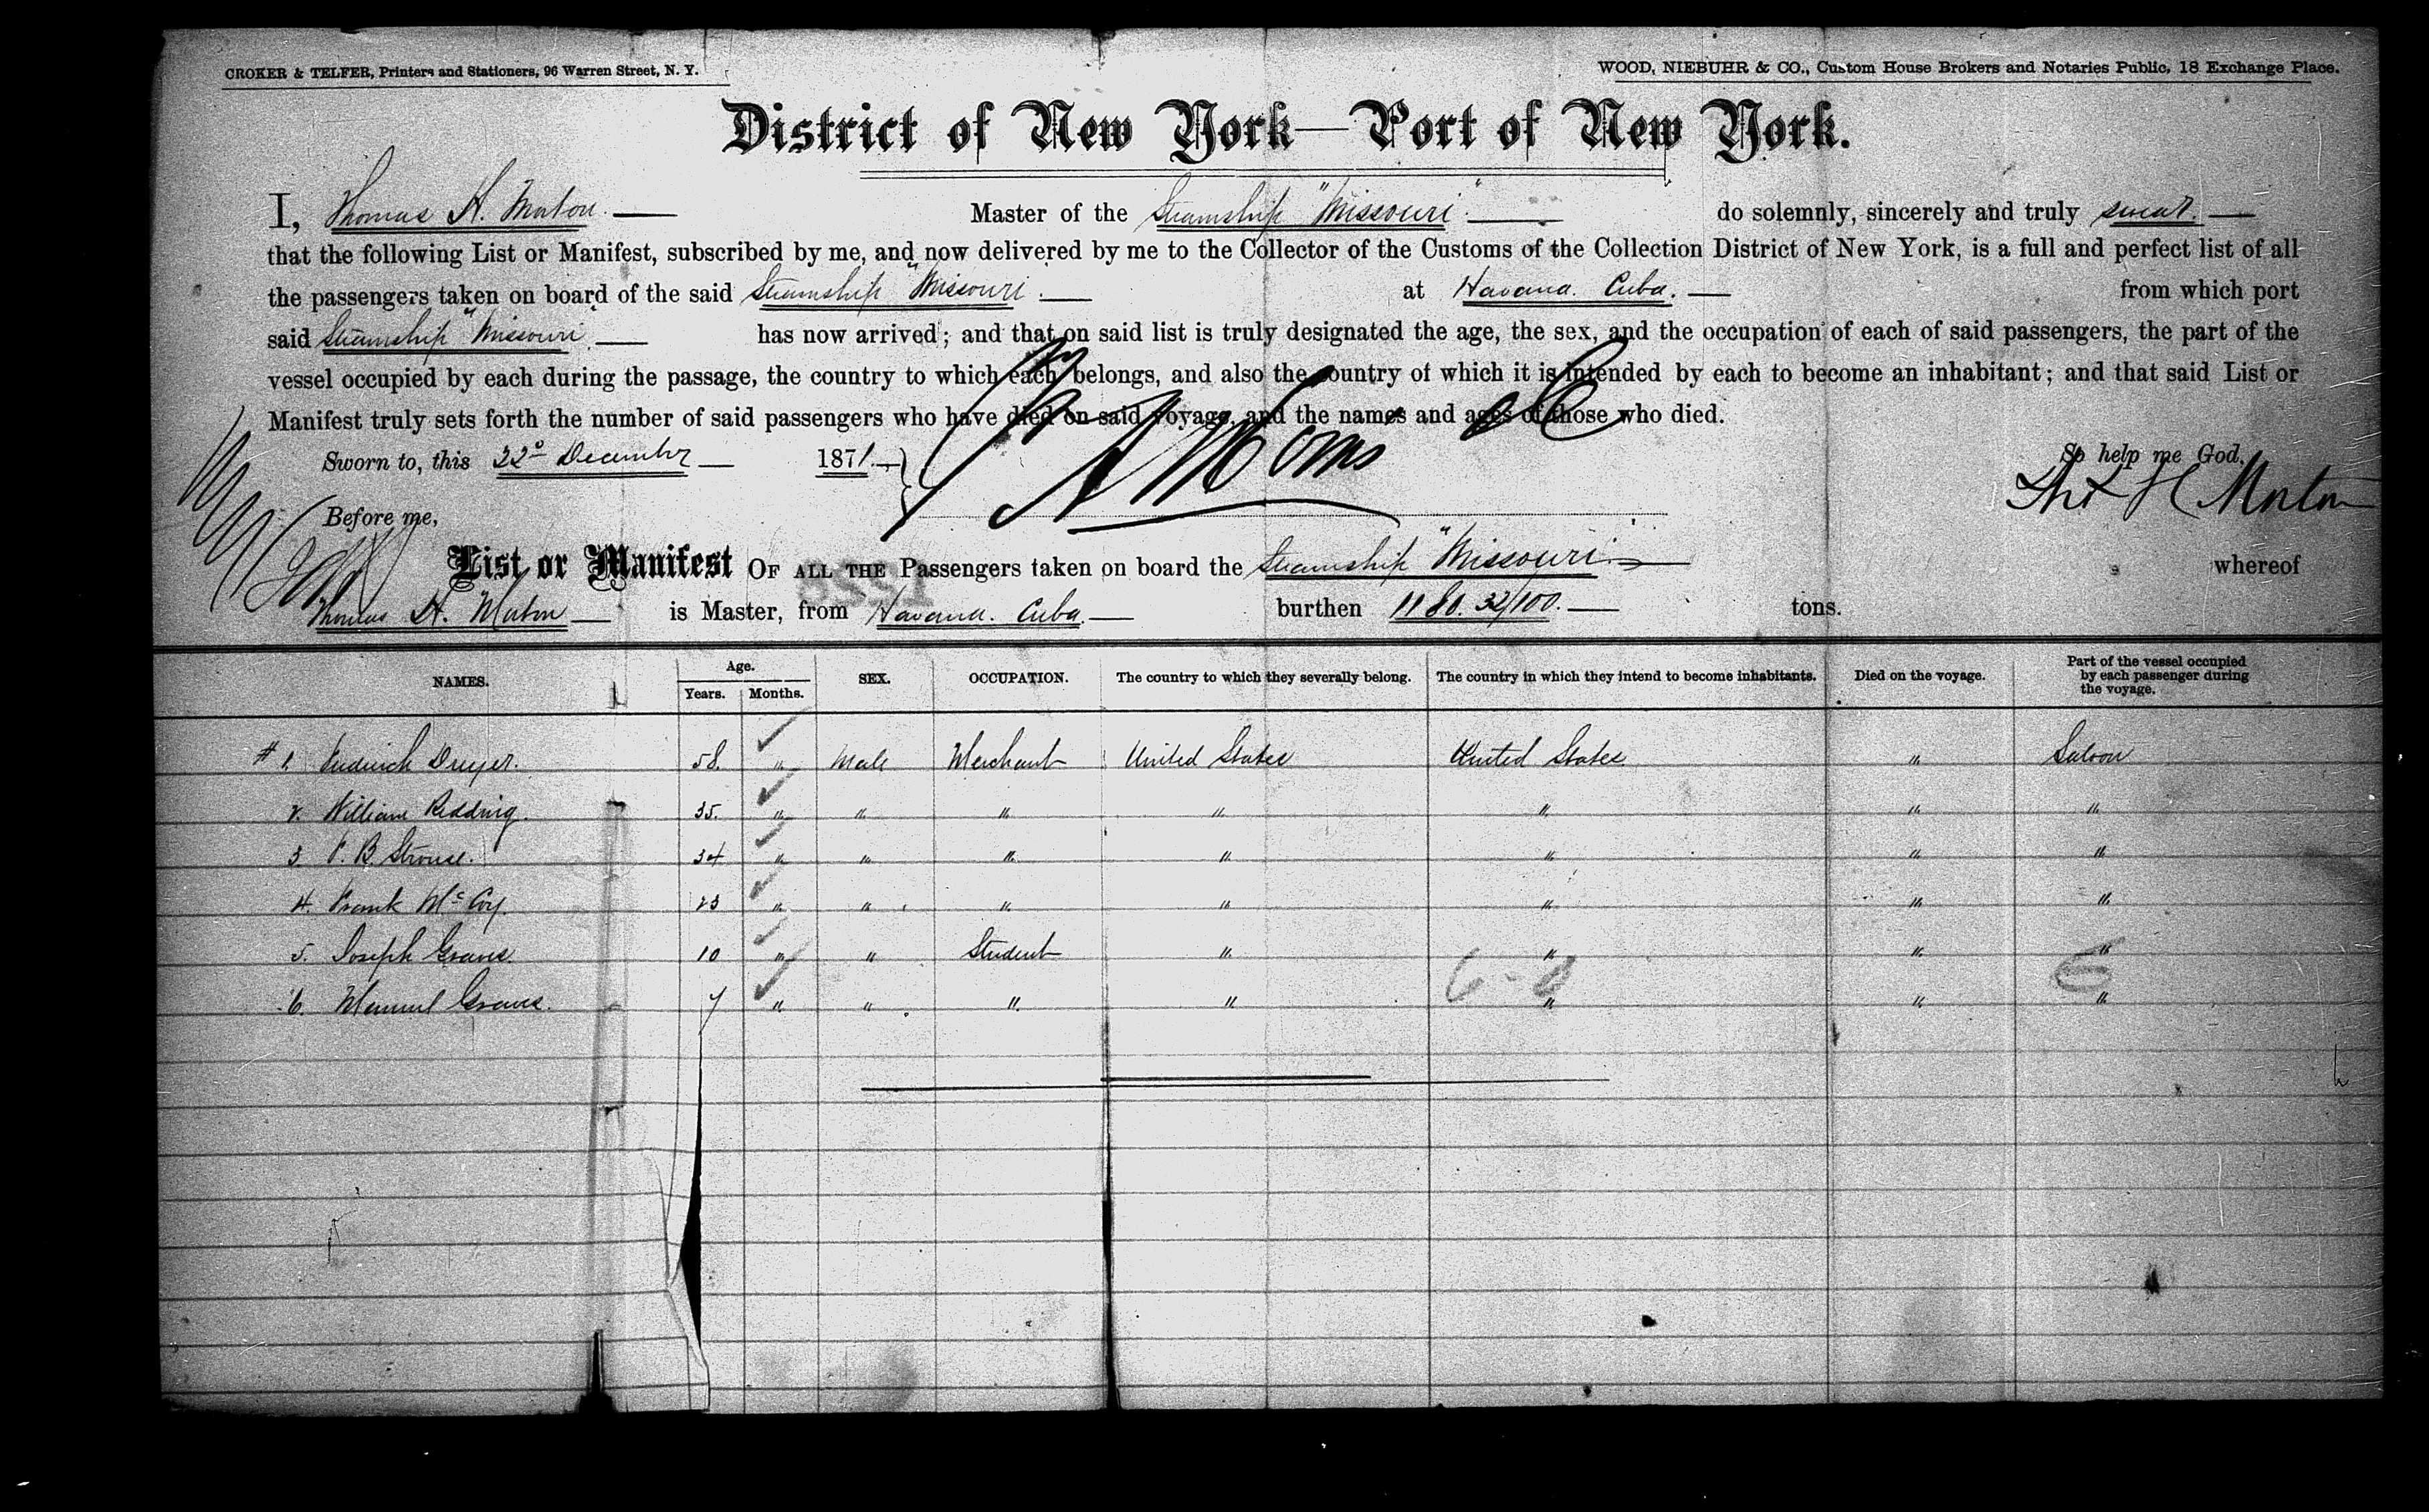 CROKER & TELFER, Printers and Stationers, 96 Warren Street, N. Y.
WOOD, NIEBUHR & CO., Custom House Brokers and Notaries Public, 18 Exchange Place.
District of New York—Port of New York.
I, Thomas H. Morton. Master of the Steamship "Missouri" do solemnly, sincerely and truly swear.
that the following List or Manifest, subscribed by me, and now delivered by me to the Collector of the Customs of the Collection District of New York, is a full and perfect list of all
the passengers taken on board of the said Steamship "Missouri. at Havana. Cuba. from which port
said Steamship "Missouri. has now arrived; and that on said list is truly designated the age, the sex, and the occupation of each of said passengers, the part of the
vessel occupied by each during the passage, the country to which each belongs, and also the country of which it is intended by each to become an inhabitant; and that said List or
Manifest truly sets forth the number of said passengers who have died on said voyage, and the names and ages of those who died.
Sworn to, this 22d December 1871. So help me God,
Thos H Morton
Before me,
List or Manifest OF ALL THE Passengers taken on board the Steamship "Missouri. whereof
Thomas H. Morton is Master, from Havana. Cuba. burthen 1180. 32/100. tons.
NAMES. Age. Years. Months. SEX. OCCUPATION. The country to which they severally belong. The country in which they intend to become inhabitants. Died on the voyage. Part of the vessel occupied by each passenger during the voyage.
# 1. Fredrich Dreyer. 58. " Male Merchant United States United States " Saloon
2. William Redding. 35. " " " " " " "
3. F. B Strouse. 34 " " " " " " "
4. Frank McCoy. 23 " " " " " " "
5. Joseph Graves. 10 " " Student " " " "
6. Manuel Graves. 7 " " " " " " "
6-0